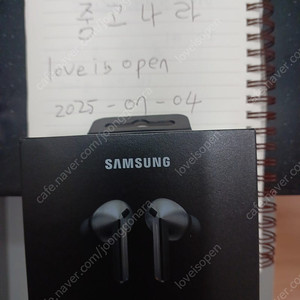 중고나라
loveis open
2025-07-04
SAMSUNG
cafe.naver.com/joonggonara
loveisopen